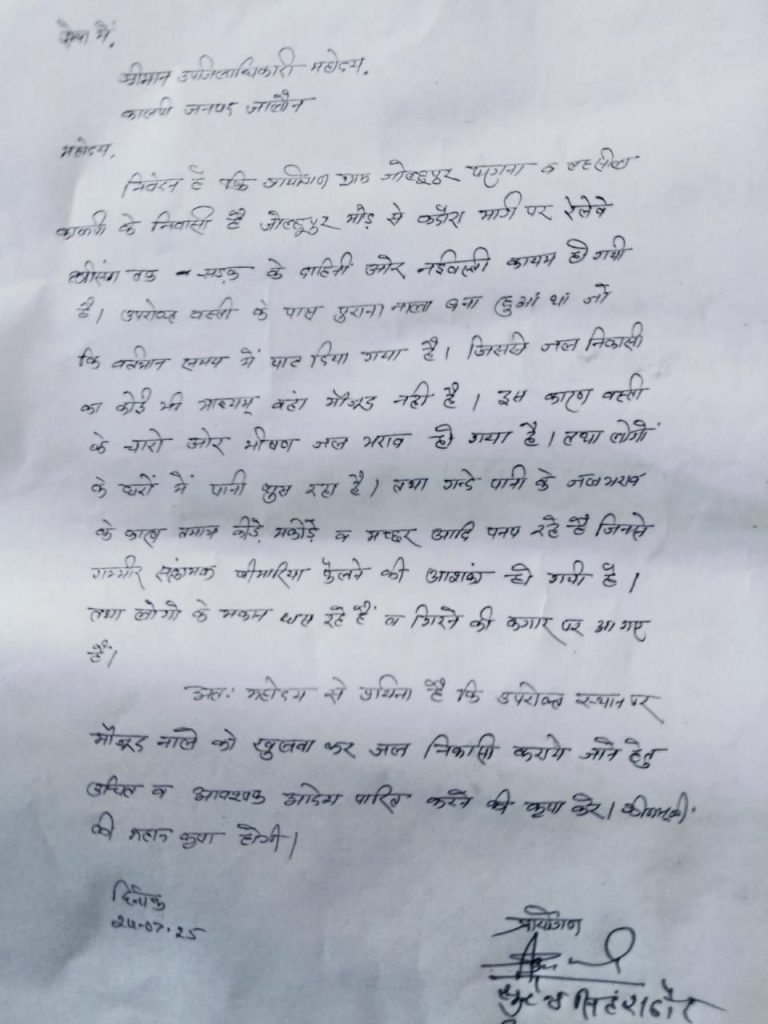 सेवा में,
श्रीमान उपजिलाधिकारी महोदय,
कालपी जनपद जालौन
महोदय,
निवेदन है कि प्रार्थीगण ग्राम जोल्हूपुर परगना व तहसील
कालपी के निवासी है जोल्हूपुर मोड़ से कदौरा मार्ग पर रेलवे
क्रासिंग तक - सड़क के दाहिनी ओर नईवस्ती कायम हो गयी
है। उपरोक्त वस्ती के पास पुराना नाला बना हुआ था जो
कि वर्तमान समय में पाट दिया गया है। जिससे जल निकासी
का कोई भी माध्यम् वहां मौजूद नही है। इस कारण वस्ती
के चारो ओर भीषण जल भराव हो गया है। तथा लोगों
के घरों में पानी घुस रहा है। तथा गन्दे पानी के जलभराव
के कारण तमाम कीड़े मकोड़े व मच्छर आदि पनप रहे है जिनसे
गम्भीर संक्रामक बीमारिया फैलने की आशंका हो गयी है।
तथा लोगो के मकान धस रहे हैं व गिरने की कगार पर आ गए
हैं।
अतः महोदय से प्रार्थना है कि उपरोक्त स्थान पर
मौजूद नाले को खुलवा कर जल निकासी कराये जाने हेतु
उचित व आवश्यक आदेश पारित करने की कृपा करे। श्रीमानजी
की महान कृपा होगी।
दिनांक
24-07-25
प्रार्थीगण
सिंह राठौर